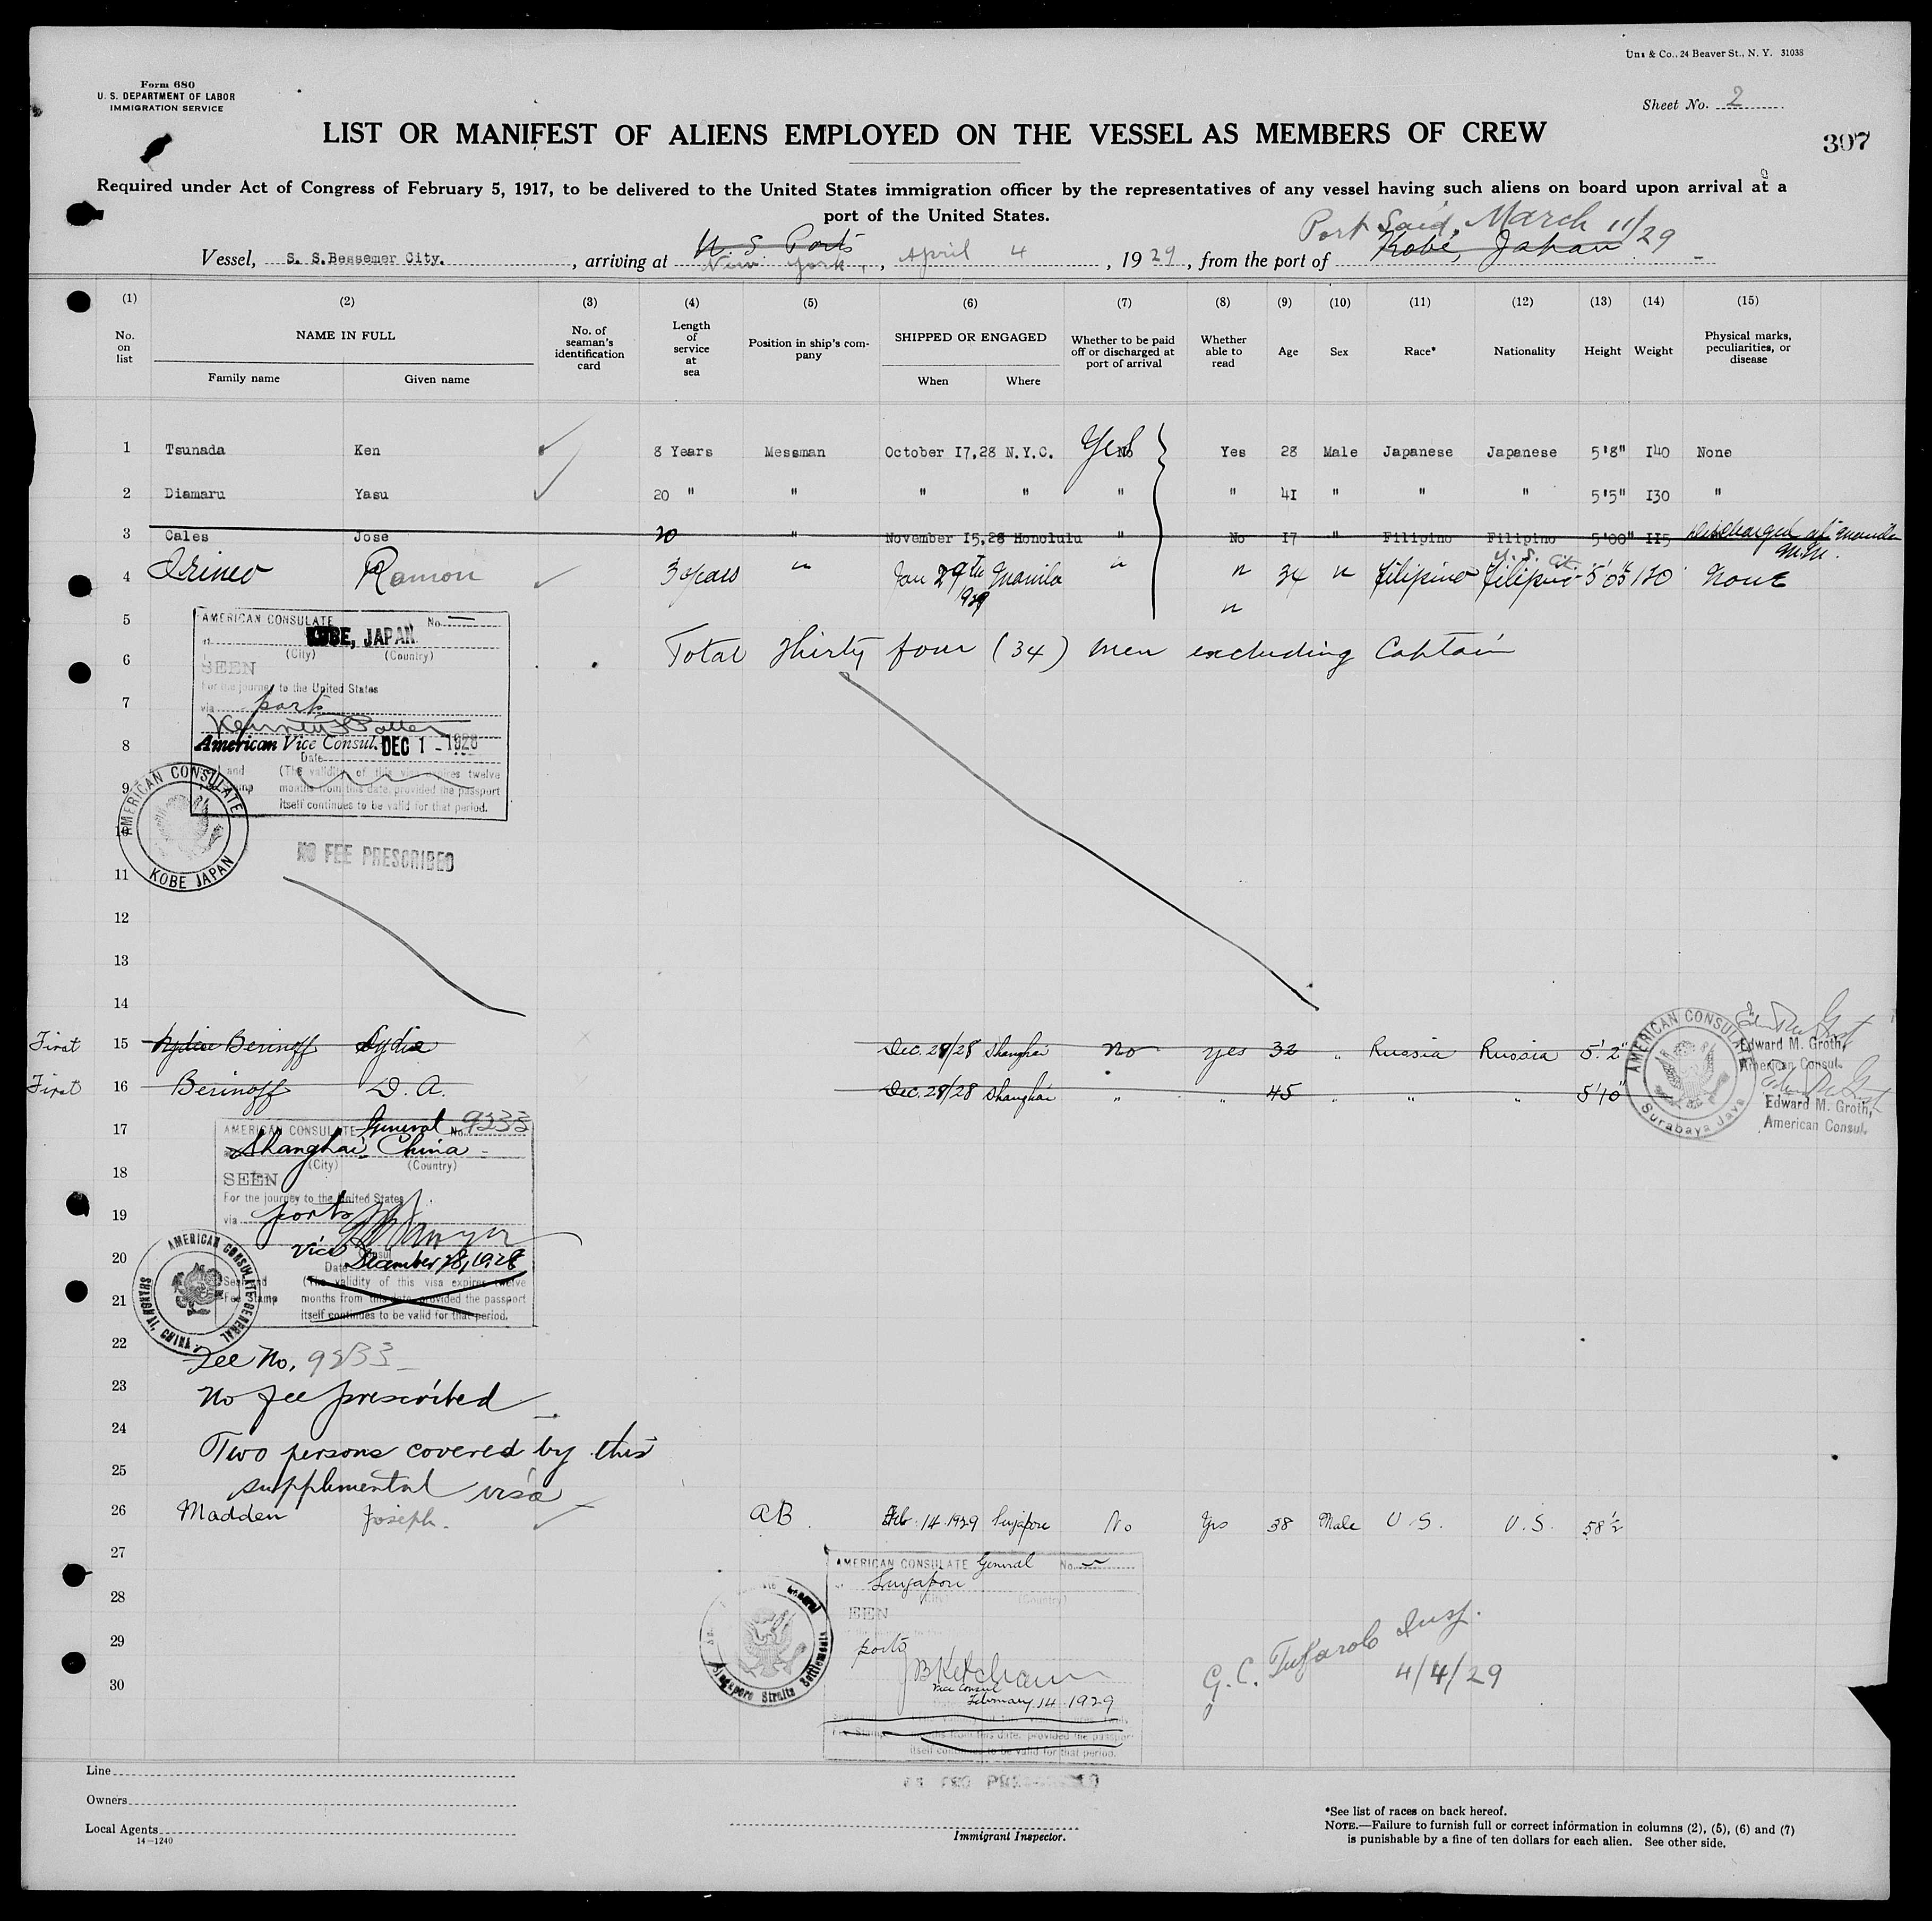 Uns & Co., 24 Beaver St., N. Y. 31038
Form 680
U. S. DEPARTMENT OF LABOR
IMMIGRATION SERVICE
Sheet No. 2
LIST OR MANIFEST OF ALIENS EMPLOYED ON THE VESSEL AS MEMBERS OF CREW
307
Required under Act of Congress of February 5, 1917, to be delivered to the United States immigration officer by the representatives of any vessel having such aliens on board upon arrival at a
port of the United States.
U. S. Ports Port Said, March 11/29
Vessel, S. S. Bessemer City. , arriving at New York, , April 4 , 1929 , from the port of Kobe, Japan
(1) (2) (3) (4) (5) (6) (7) (8) (9) (10) (11) (12) (13) (14) (15)
No. on list NAME IN FULL No. of seaman's identification card Length of service at sea Position in ship's company SHIPPED OR ENGAGED Whether to be paid off or discharged at port of arrival Whether able to read Age Sex Race* Nationality Height Weight Physical marks, peculiarities, or disease
Family name Given name When Where
1 Tsunada Ken 8 Years Messman October 17,28 N.Y.C. No Yes Yes 28 Male Japanese Japanese 5'8" 140 None
2 Diamaru Yasu 20 " " " " " " 41 " " " 5'5" 130 "
3 Cales Jose 20 " November 15,28 Honolulu " No 17 " Filipino Filipino 5'00" 115 Discharged at Manila
4 Irineo Ramon 3 years " Jan 29th Manila " " 34 " filipino filipino U. S. Cit. 5'05 130 None
1929
5 "
6 Total Thirty four (34) men excluding Captain
7
8
9
10
11
12
13
14
AMERICAN CONSULATE No.
KOBE, JAPAN
(City) (Country)
SEEN
For the journey to the United States
via ports
American Vice Consul. DEC 1 - 1928
Date
(The validity of this visa expires twelve
months from this date, provided the passport
itself continues to be valid for that period.
AMERICAN CONSULATE
KOBE JAPAN
NO FEE PRESCRIBED
First 15 Lydia Berinoff Lydia Dec. 28/28 Shanghai No yes 32 " Russia Russia 5'2"
Edward M. Groth,
American Consul.
First 16 Berinoff D. A. Dec. 28/28 Shanghai " " 45 " " " 5'10"
Edward M. Groth,
American Consul.
AMERICAN CONSULATE
Surabaya Java
17
18
19
20
21
22
23
24
25
AMERICAN CONSULATE General No. 9233
Shanghai, China
(City) (Country)
SEEN
For the journey to the United States
via ports
Vice Consul
Date December 28, 1928
Seal and
Fee Stamp
(The validity of this visa expires twelve
months from this date, provided the passport
itself continues to be valid for that period.
AMERICAN CONSULATE GENERAL
SHANGHAI, CHINA
Fee No. 9233
No fee prescribed
Two persons covered by this
supplemental visa
26 Madden Joseph AB Feb. 14 1929 Singapore No Yes 38 Male U.S. U.S. 58½
27
28
29
30
AMERICAN CONSULATE General No.
Singapore
(City) (Country)
SEEN
ports
Vice Consul
February 14 1929
months from this date, provided the passport
itself continues to be valid for that period.
Singapore Straits Settlements
G. C. Insp.
4/4/29
Line
Owners
Local Agents
14—1240
Immigrant Inspector.
*See list of races on back hereof.
NOTE.—Failure to furnish full or correct information in columns (2), (5), (6) and (7)
is punishable by a fine of ten dollars for each alien. See other side.